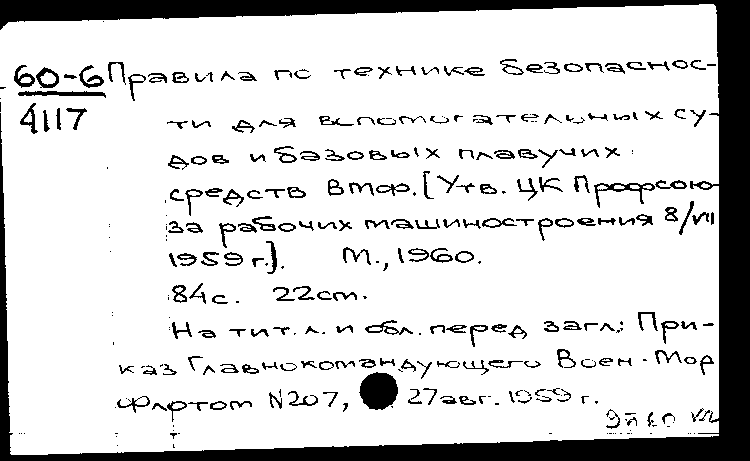 60-6 Правила по технике безопаснос-
4117
ти для вспомогательных су-
дов и базовых плавучих
средств ВМФ. [Утв. ЦК Профсою-
за рабочих машиностроения 8/VII
1959 г.]. М., 1960.
84с. 22см.
На тит. л. и обл. перед загл.: При-
каз Главнокомандующего Воен-Мор
Флотом N207, 27 авг. 1959 г.